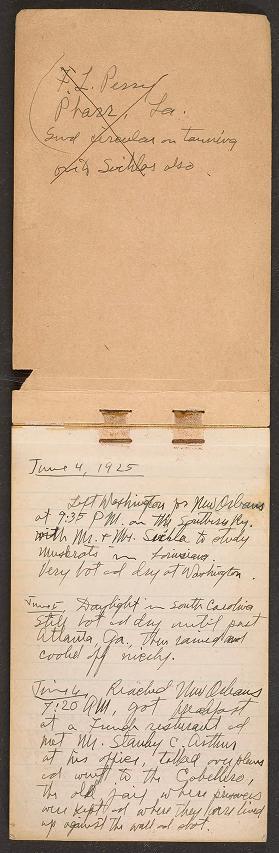 F. L. Perry
Pharr, La.
Send circular on tanning
write Svihlas also
June 4, 1925
Left Washington for New Orleans
at 9:35 P.M. on the Southern Ry.
with Mr. & Mrs. Svihla to study
muskrats in Louisiana.
Very hot ad day at Washington.
June 5 Daylight in South Carolina
still hot ad day until past
Atlanta, Ga. Then rained and
cooled off nicely.
June 6 Reached New Orleans
7:20 A.M., got breakfast
at a French restaurant ad
met Mr. Stanley C. Arthur
at his office, talked over plans
ad went to the Cabeldo,
the old jail where prisoners
were kept ad where they were lined
up against the wall ad shot.